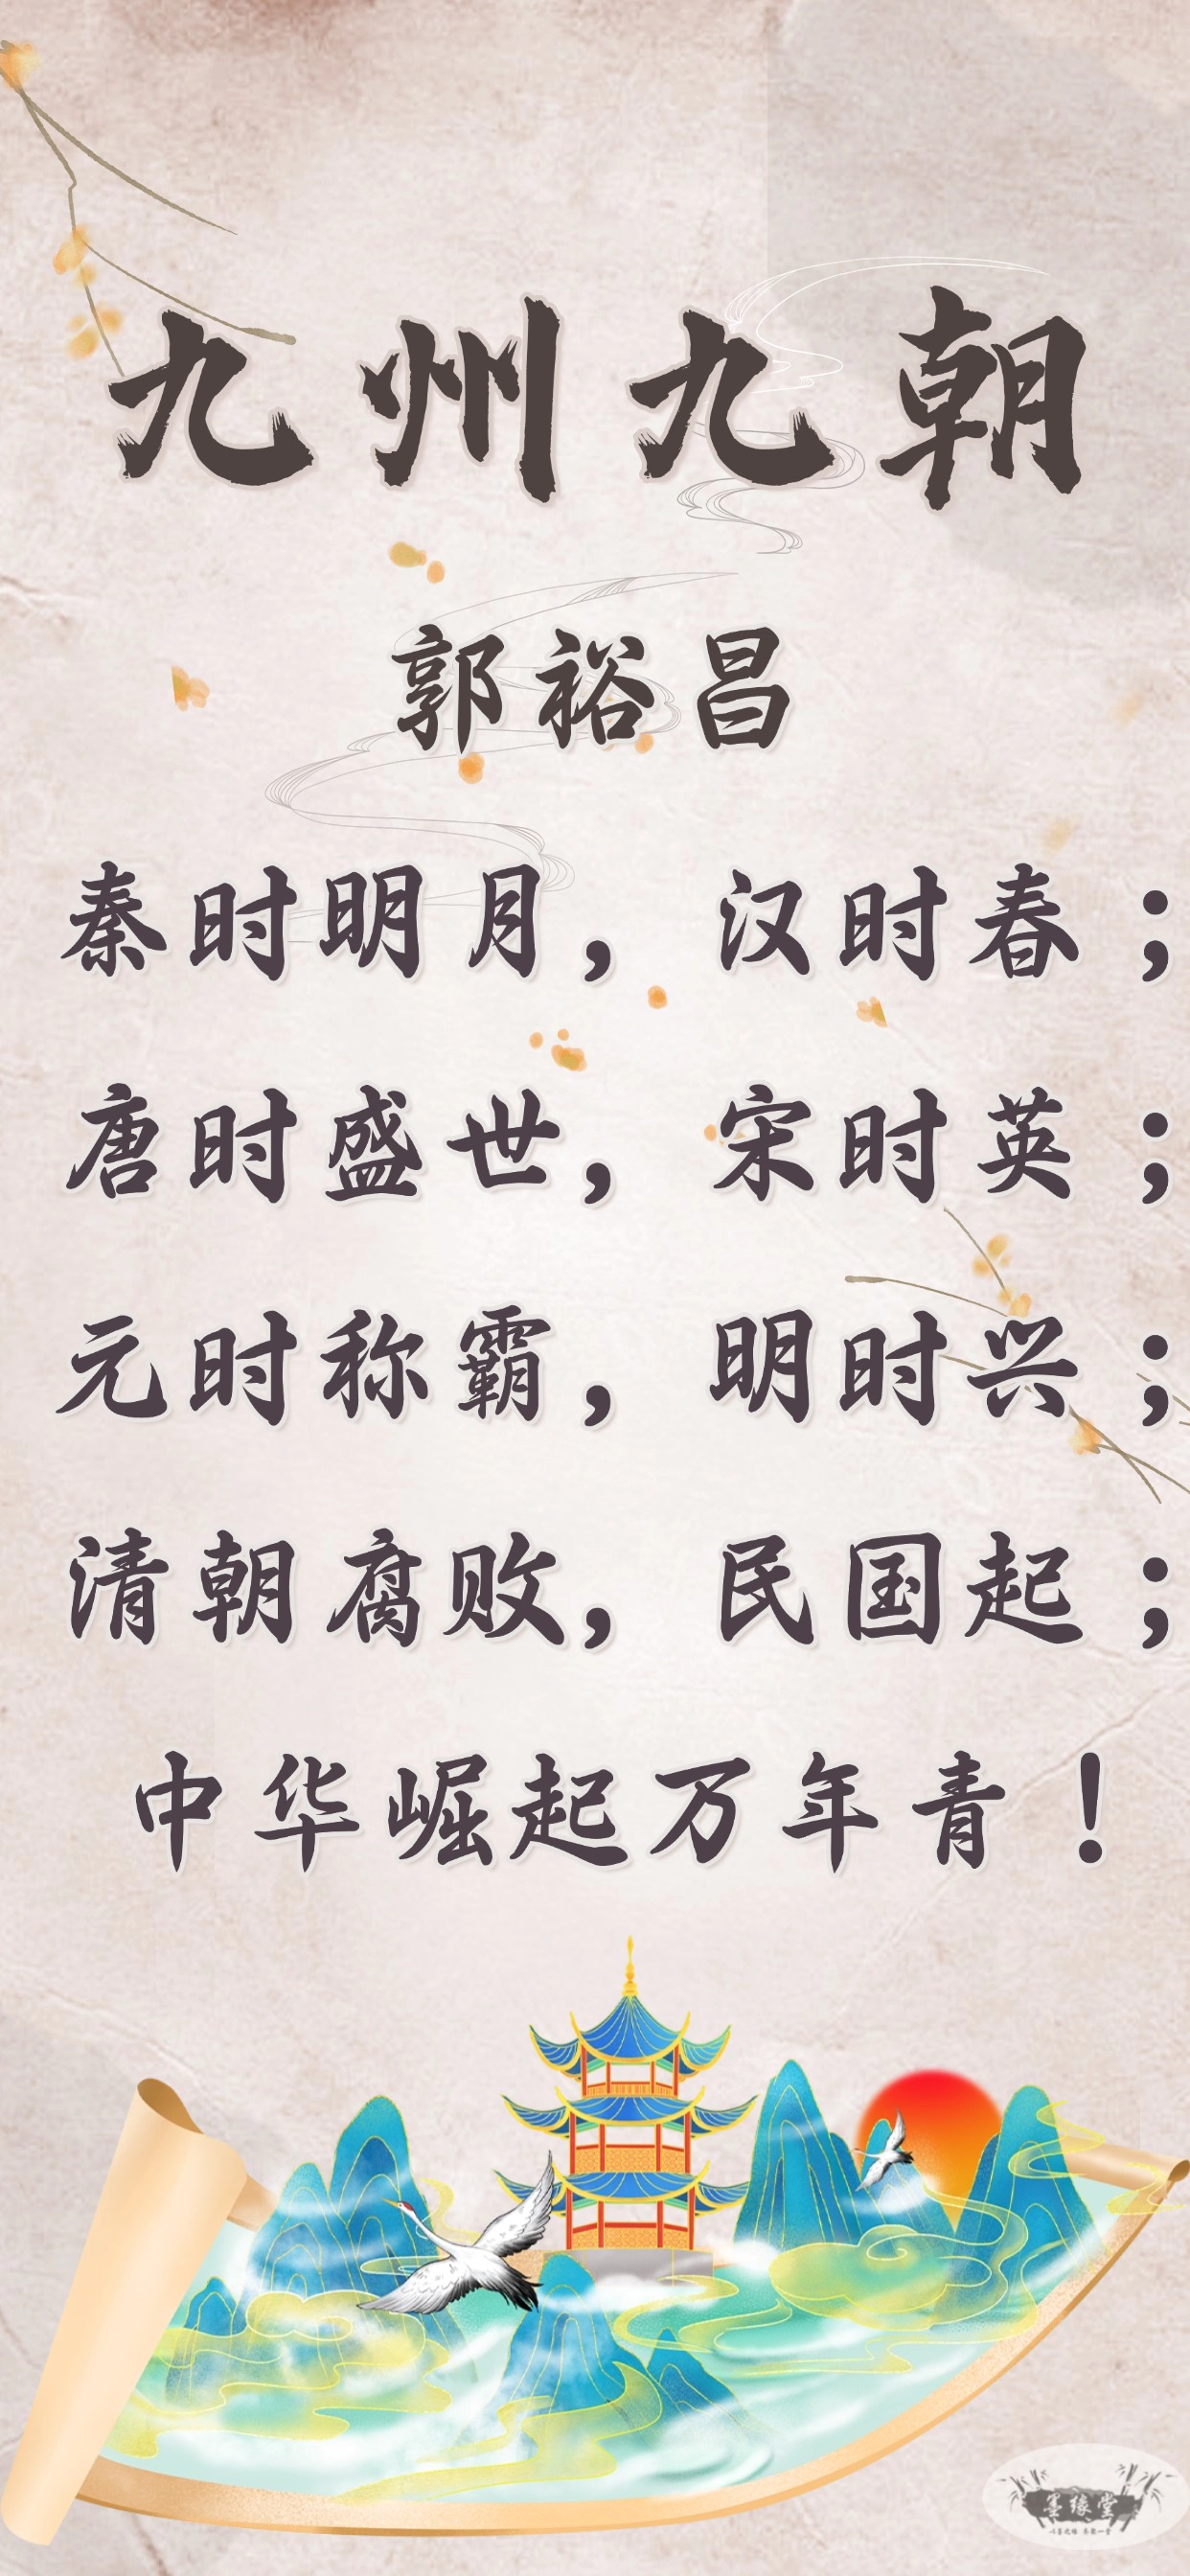 九州九朝
郭裕昌
秦时明月，汉时春；
唐时盛世，宋时英；
元时称霸，明时兴；
清朝腐败，民国起；
中华崛起万年青！
墨缘堂